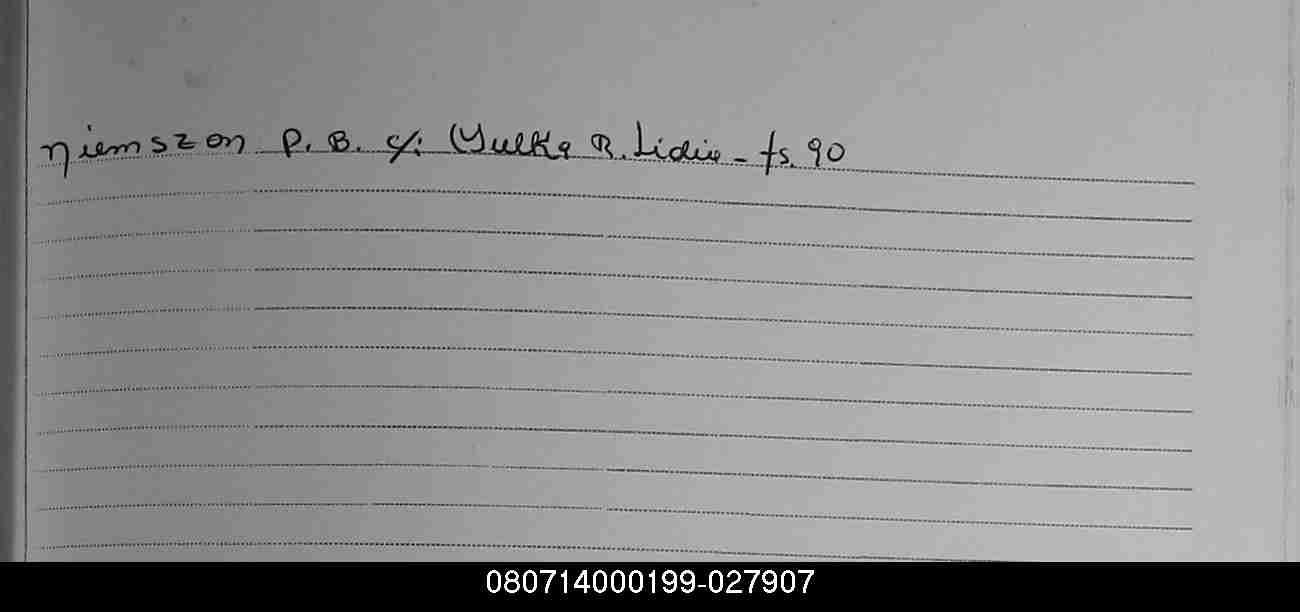 Niemszon P. B. c/: Yulka R. Lidia - fs. 90
080714000199-027907